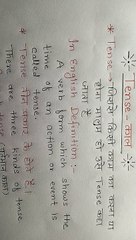 Tense - काल
* Tense :- जिससे किसी काम का करना या
होना मालूम हो उसे Tense कहा
जाता है।
In English Definition :-
A verb form which shows the
time of an action or event is
called tense.
* Tense तीन प्रकार के होते हैं।
There are three kinds of tense